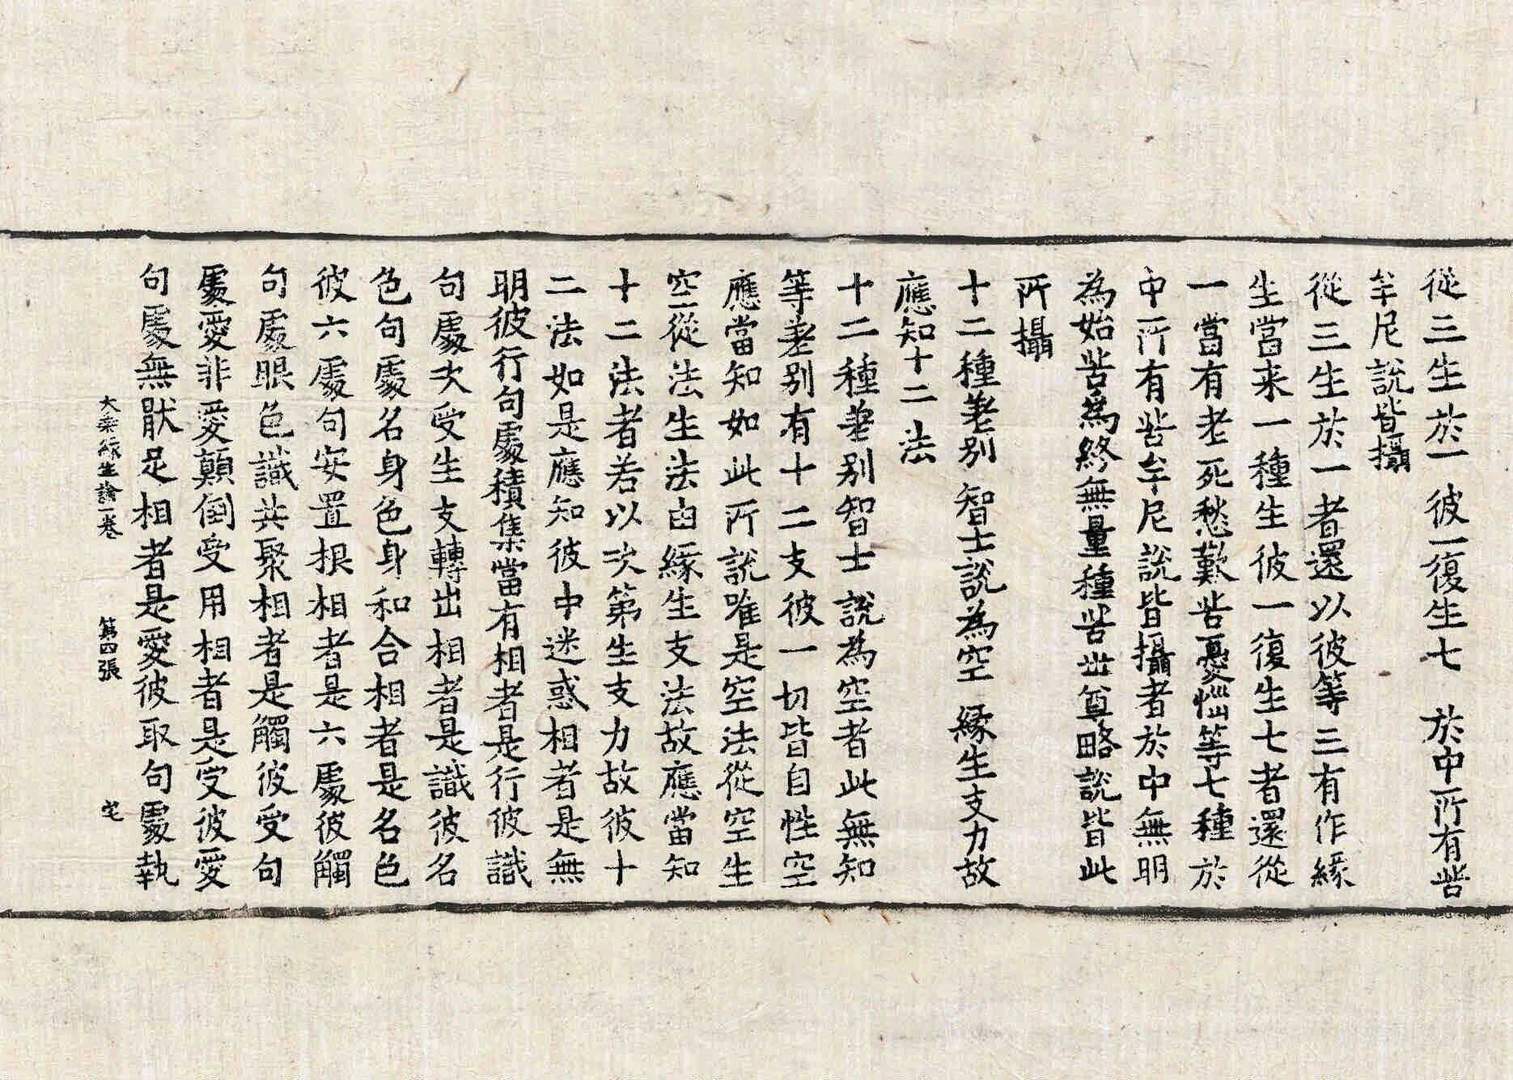 從三生於一 彼一復生七 於中所有苦
牟尼說皆攝
從三生於一者還以彼等三有作緣
生當来一種生彼一復生七者還從
一當有老死愁歎苦憂惱等七種於
中所有苦牟尼說皆攝者於中無明
為始苦為終無量種苦世尊略說皆此
所攝
十二種差别 智士說為空 緣生支力故
應知十二法
十二種差别智士說為空者此無知
等差别有十二支彼一切皆自性空
應當知如此所說唯是空法從空生
空從法生法由緣生支法故應當知
十二法者若以次第生支力故彼十
二法如是應知彼中迷惑相者是無
明彼行句處積集當有相者是行彼識
句處次受生支轉出相者是識彼名
色句處名身色身和合相者是名色
彼六處句安置根相者是六處彼觸
句處眼色識共聚相者是觸彼受句
處愛非愛顛倒受用相者是受彼愛
句處無猒足相者是愛彼取句處執
大乘緣生論一卷 第四張 宅